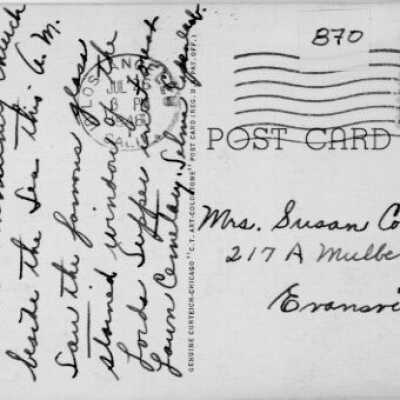 Church
beside the Sea this A.M.
Saw the famous glass
stained window of the
Lords Supper in Forest
Lawn Cemetary. Selma
LOS ANG
JUL 16
PM
CALIF.
GENUINE CURTEICH-CHICAGO "C.T. ART-COLORTONE" POST CARD (REG. U.S. PAT. OFF.)
870
POST CARD
Mrs. Susan Co
217 A Mulbe
Evansvi